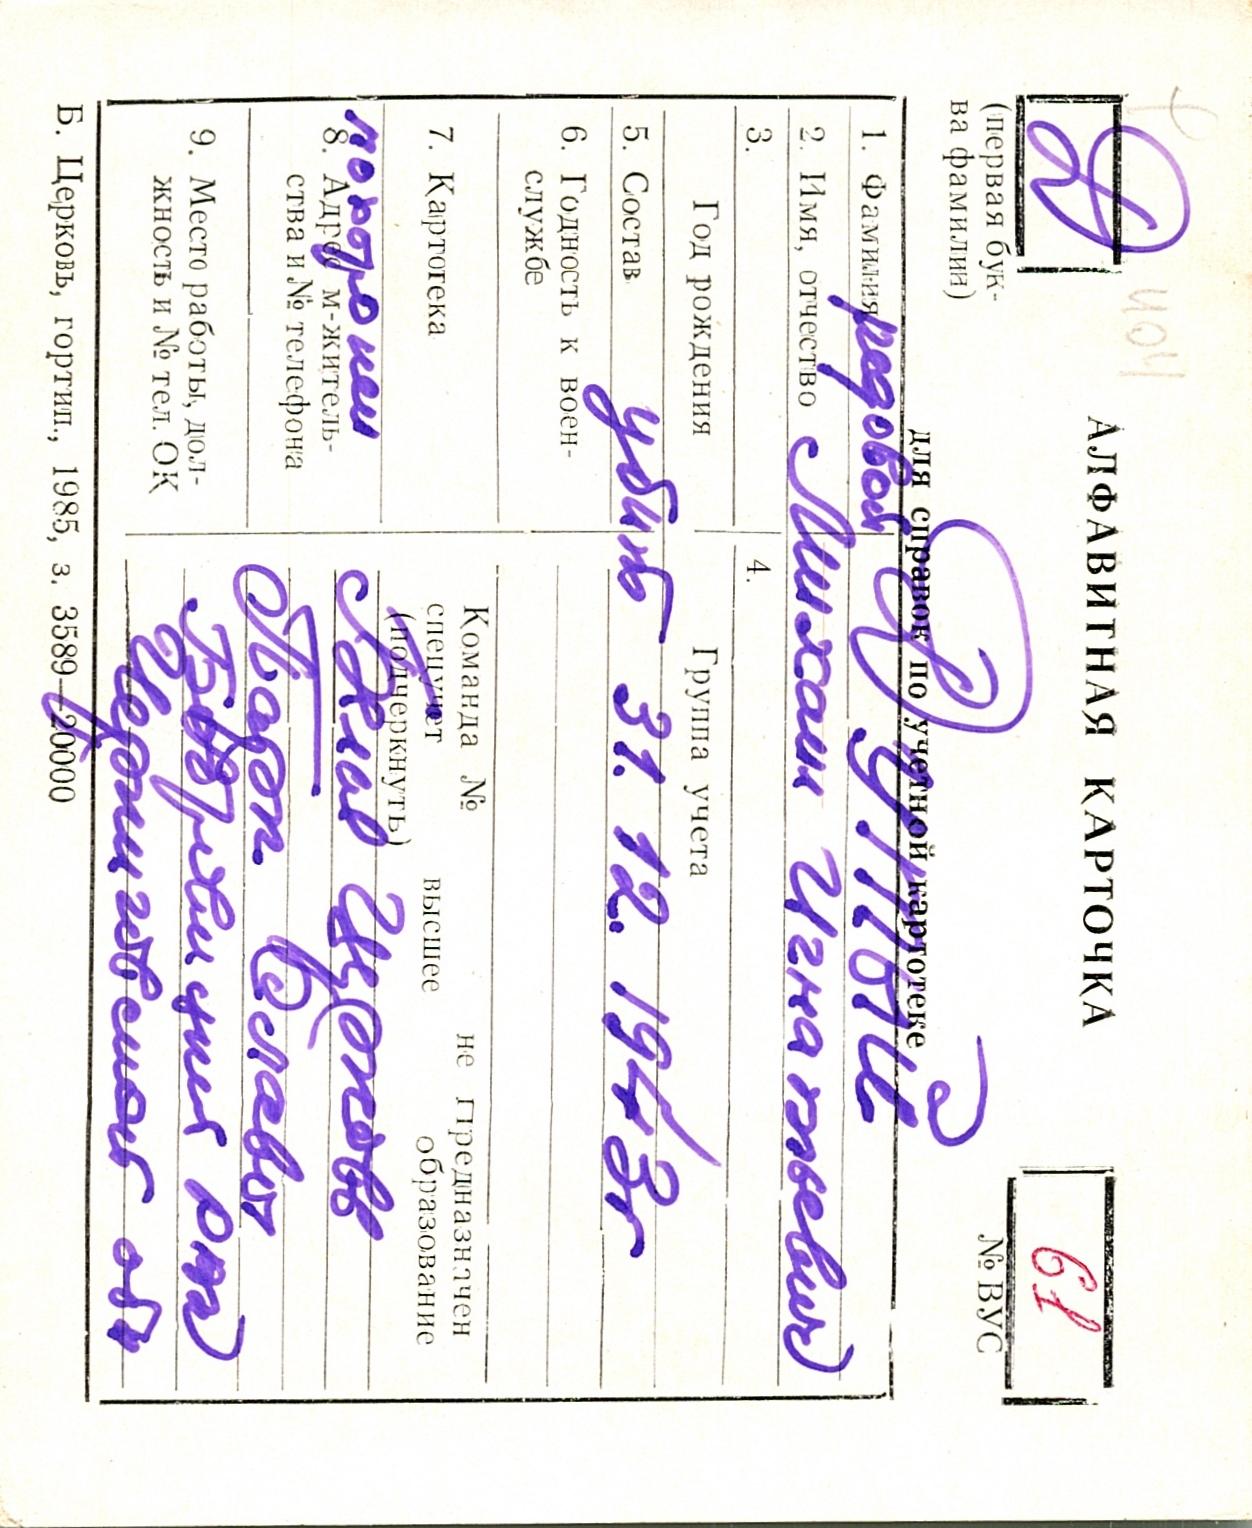 АЛФАВИТНАЯ КАРТОЧКА
для справок по учетной картотеке
(первая бук-
ва фамилии)
61
№ ВУС
1. Фамилия рядовой
2. Имя, отчество Михаил Игнатьевич
3.
Год рождения
4.
Группа учета
5. Состав убит 31.12.1943г
6. Годность к воен-
службе
7. Картотека
Команда № не предназначен
спецучет высшее образование
(подчеркнуть)
похоронен
8. Адрес м-житель-
ства и № телефона
9. Место работы, дол-
жность и № тел. ОК
обл
Б. Церковь, гортип., 1985, з. 3589—20000